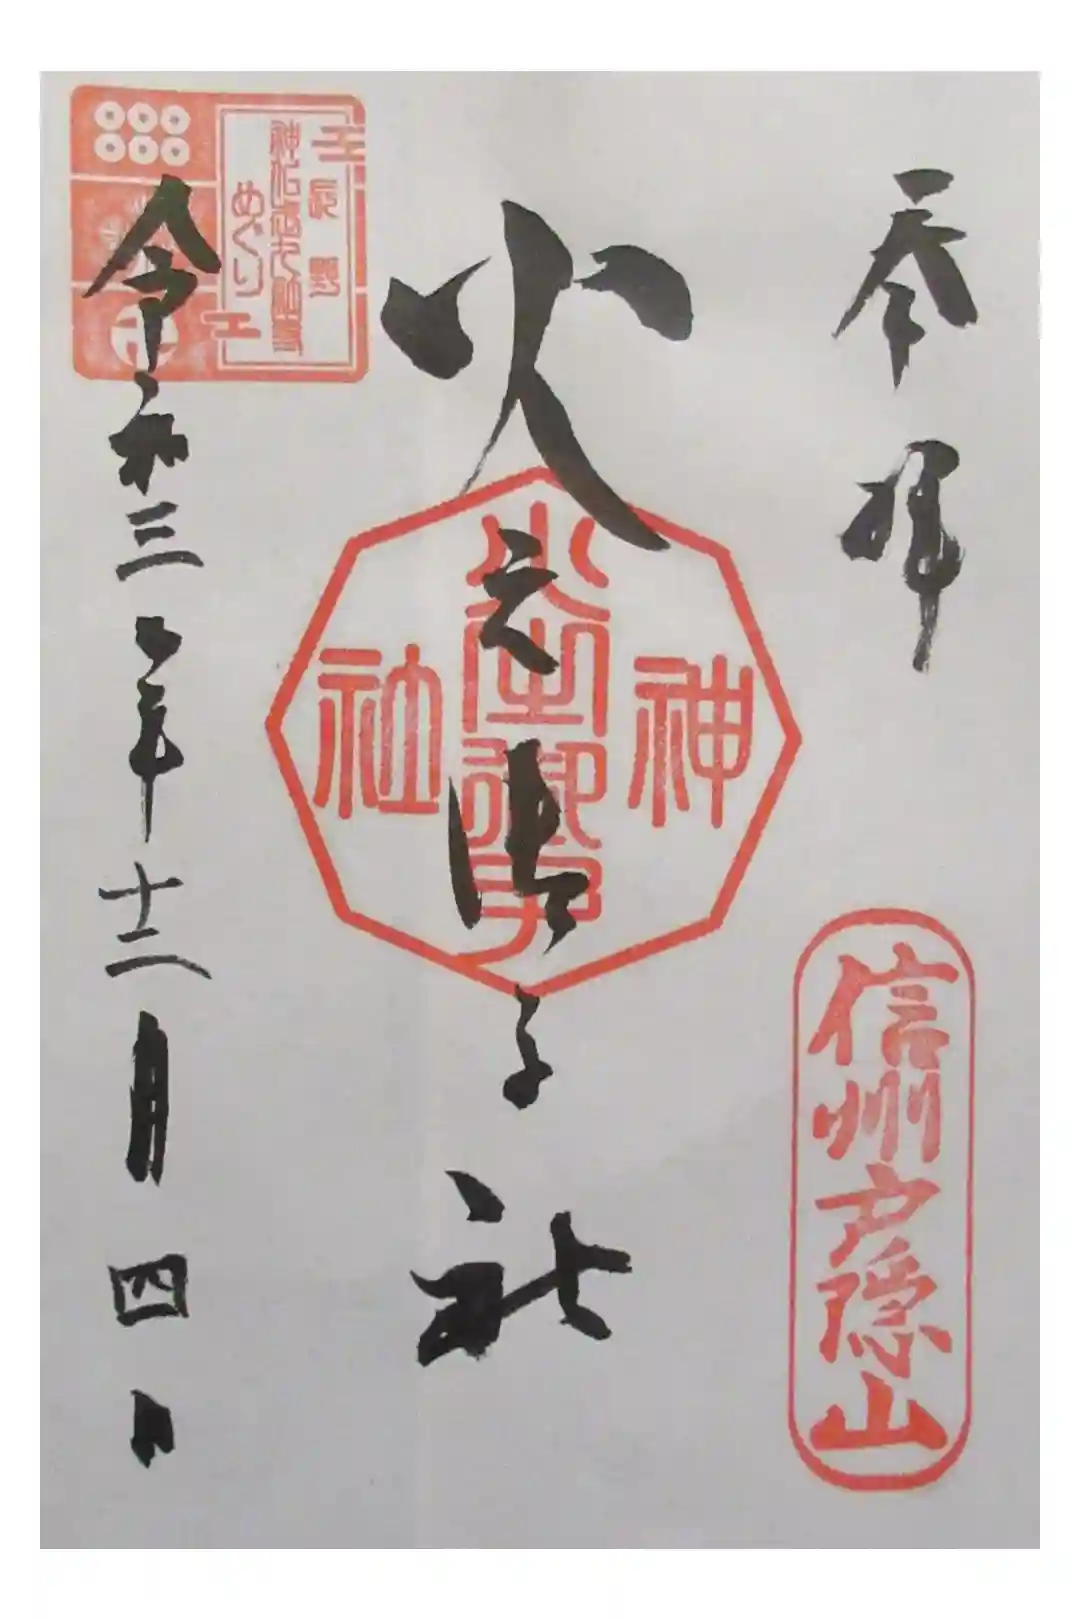 奉拝
信州戸隠山
火之御子社
火之御子神社
長野
めぐり
令和三年十二月四日